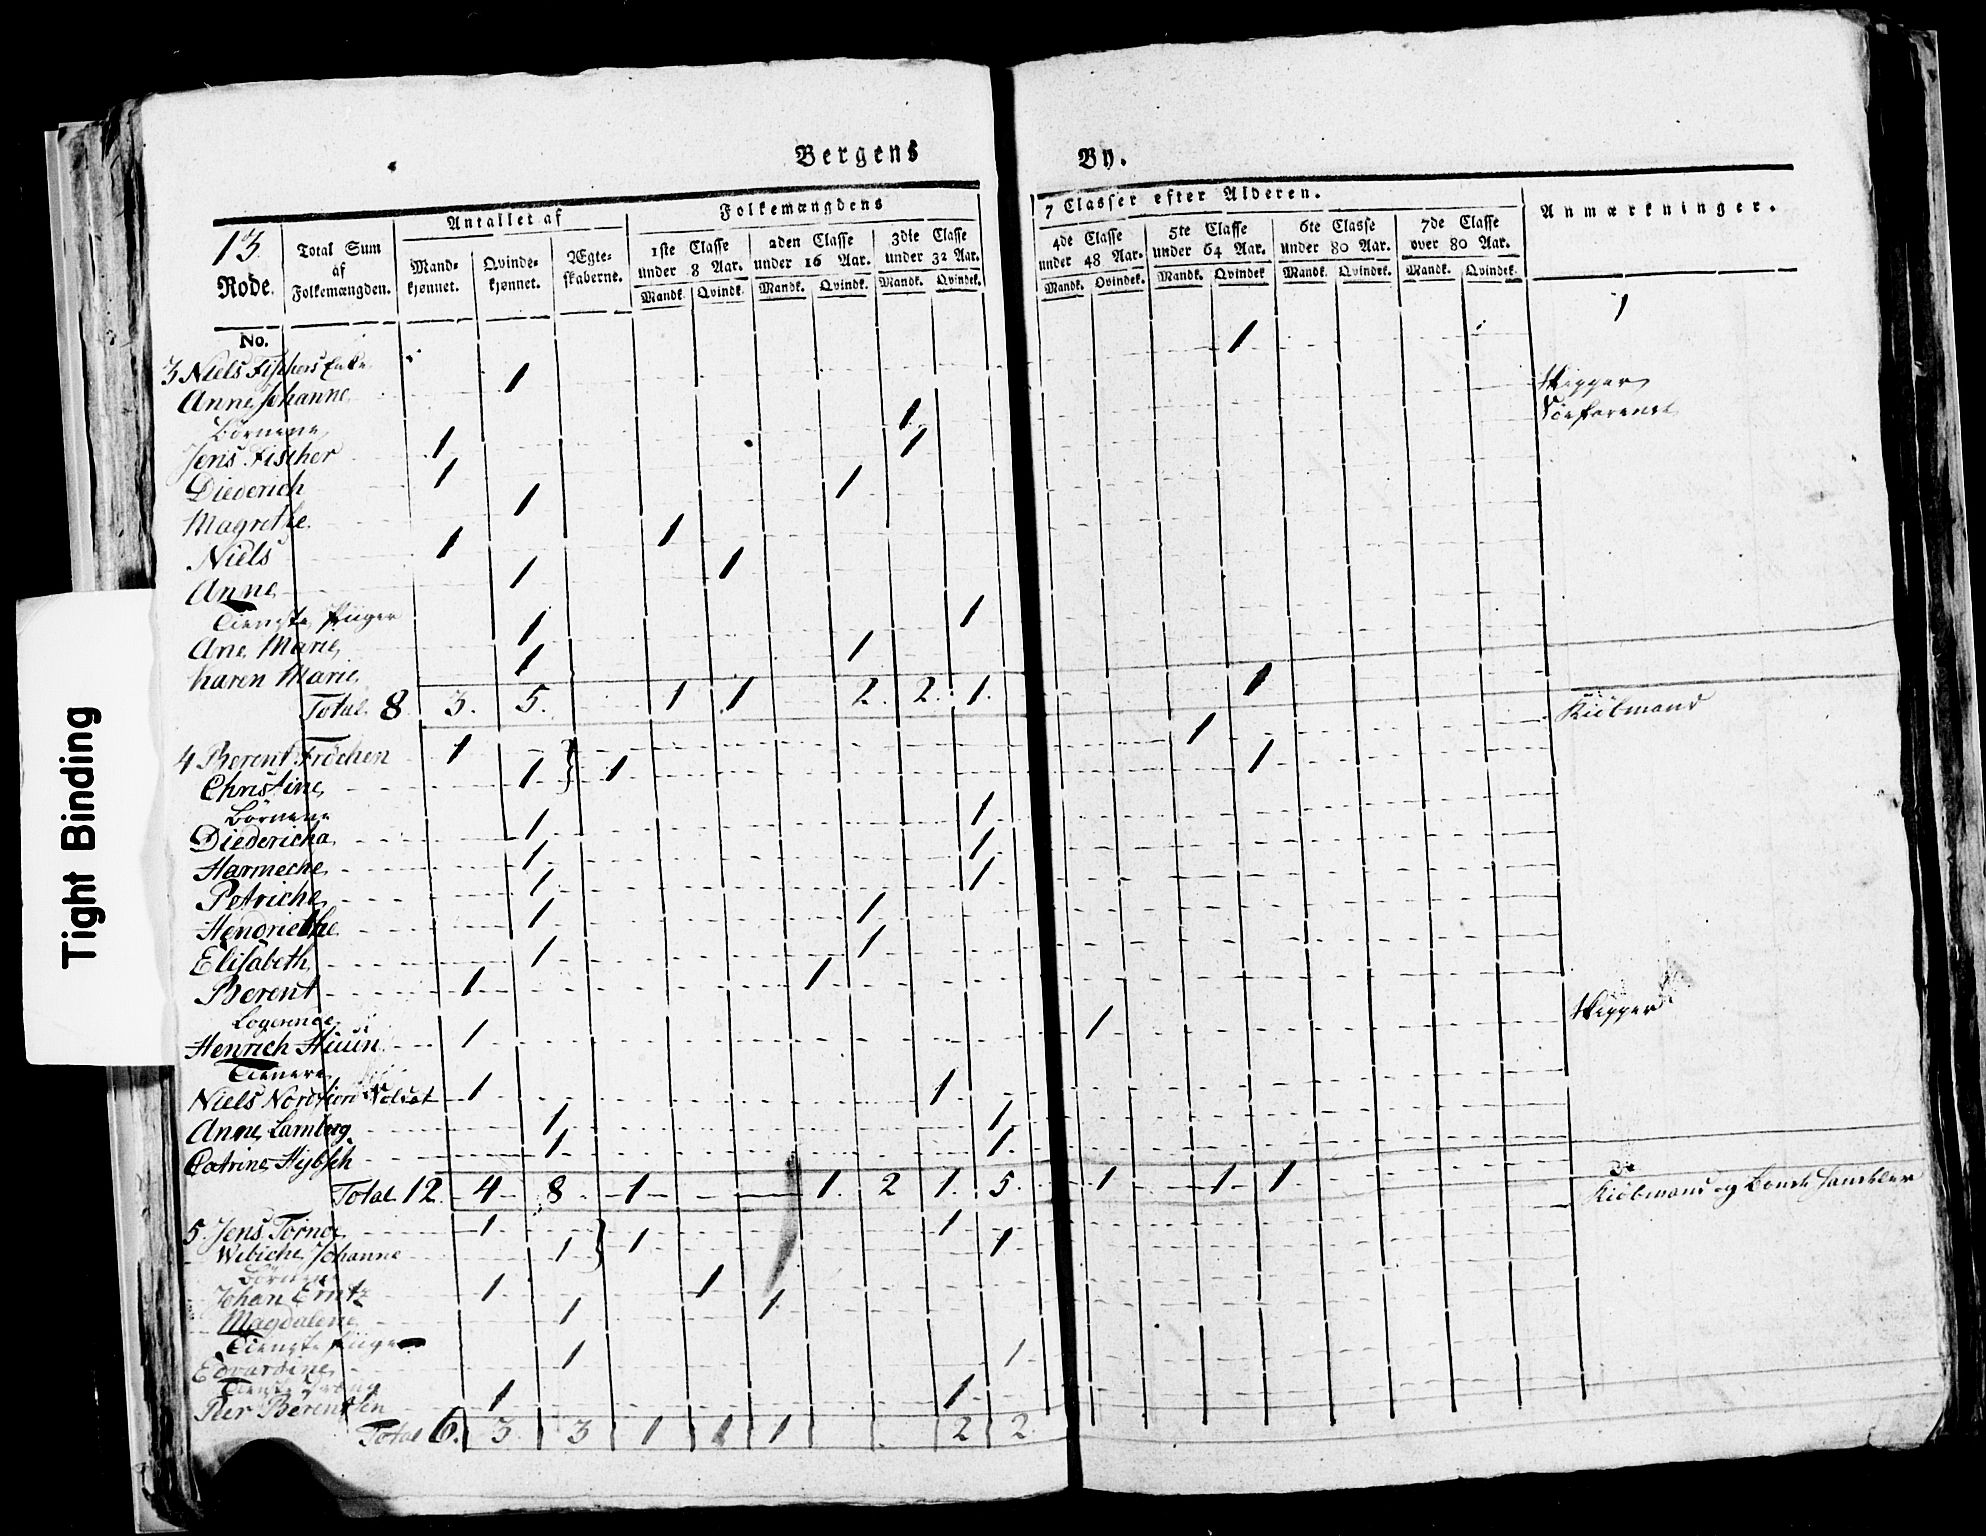 Bergens By.
13. Rode.
Total Sum af Folkemængden.
Antallet af
Mandkjønnet. Qvindekjønnet. Ægteskaberne.
Folkemængdens 7 Classer efter Alderen.
1ste Classe under 8 Aar. Mandk. Qvindk.
2den Classe under 16 Aar. Mandk. Qvindk.
3die Classe under 32 Aar. Mandk. Qvindk.
4de Classe under 48 Aar. Mandk. Qvindek.
5te Classe under 64 Aar. Mandk. Qvindek
6te Classe under 80 Aar. Mandk. Qvindek.
7de Classe over 80 Aar. Mandk. Qvindek.
Anmærkninger.
No.
3 Niels Fischers Enke
Anne Johanne 1 1
Børnene
Jens Fischer 1 1 Skipper
Diederich 1 1
Magrethe 1 1
Niels 1 1
Anne 1 1
Tieneste Piiger
Ane Marie 1 1
Karen Marie 1 1
Total 8 3. 5. 1 1 2. 2. 1. 1
4 Berent Frochen 1 1 1 Kiøbmand
Christine 1 1
Børnene
Diedericha 1 1
Harmeche 1 1
Petriche 1 1
Hendriethe 1 1
Elisabeth 1 1
Berent 1 1
Logerende
Henrich Huun 1 1 Skipper
Tienere
Niels Nordfiord 1 1
Anne Lamberg 1 1
Catrine Hybsch 1 1
Total 12 4 8 1 1. 2 1. 5. 1 1 1
5. Jens Tornoe 1 1 1 Kiøbmand og Handler
Wibiche Johanne 1 1
Børnene
Johan Erntz 1 1
Magdalene 1 1
Tieneste Piige
Edvardine 1 1
Tieneste Dreng
Peer Berentsen 1 1
Total 6. 3. 3 1 1 1 2 2
Tight Binding